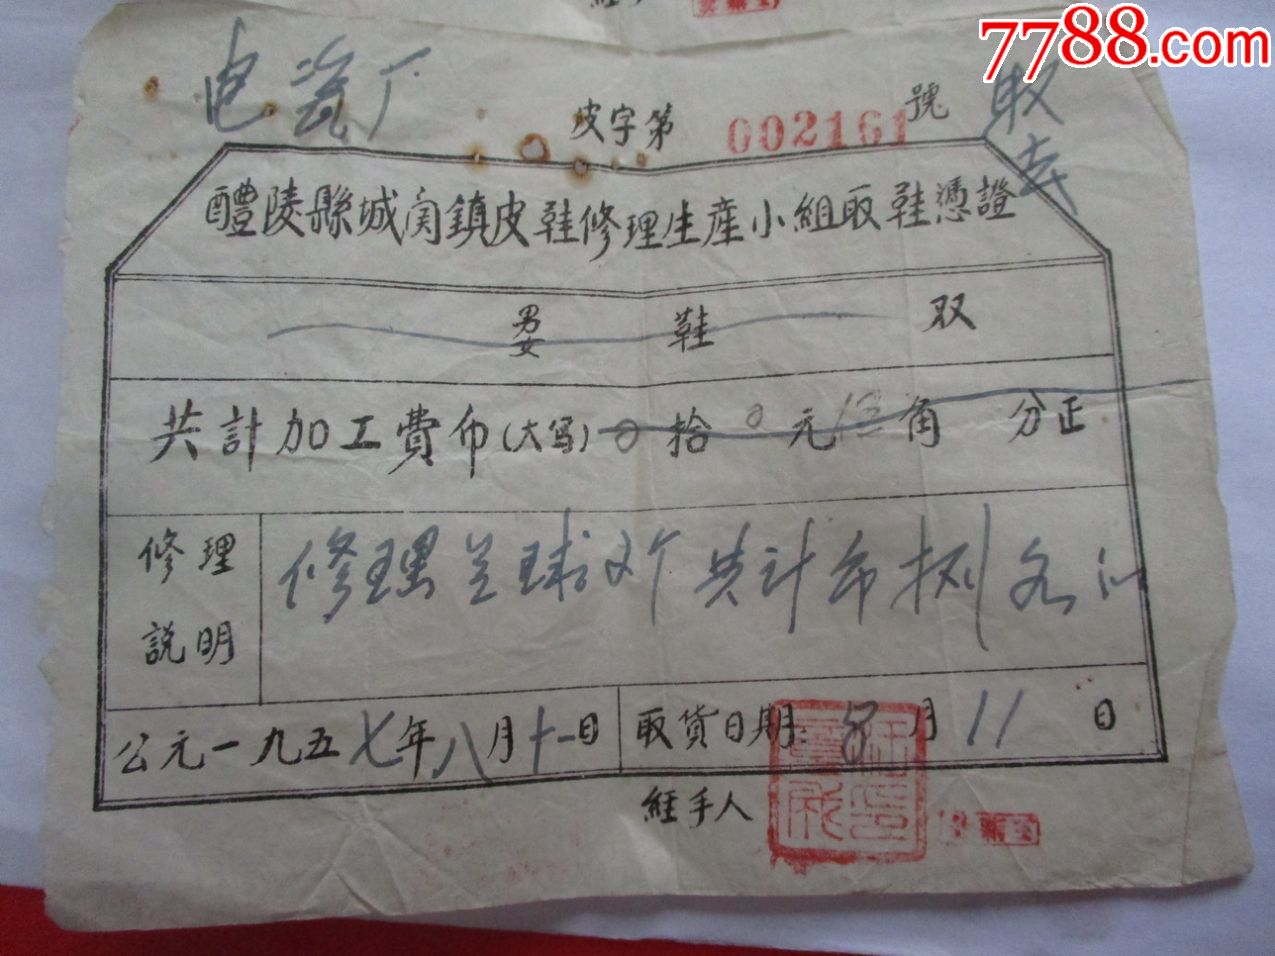 7788.com
电瓷厂
皮字第 002161 號
取
醴陵縣城関鎮皮鞋修理生産小組取鞋憑證
男女 鞋 双
共計加工費币(大寫) 0 拾 0 元 角 分正
修理説明
修理兰球 共计币捌
公元一九五七年八月十一日
取貨日期: 8月11日
経手人